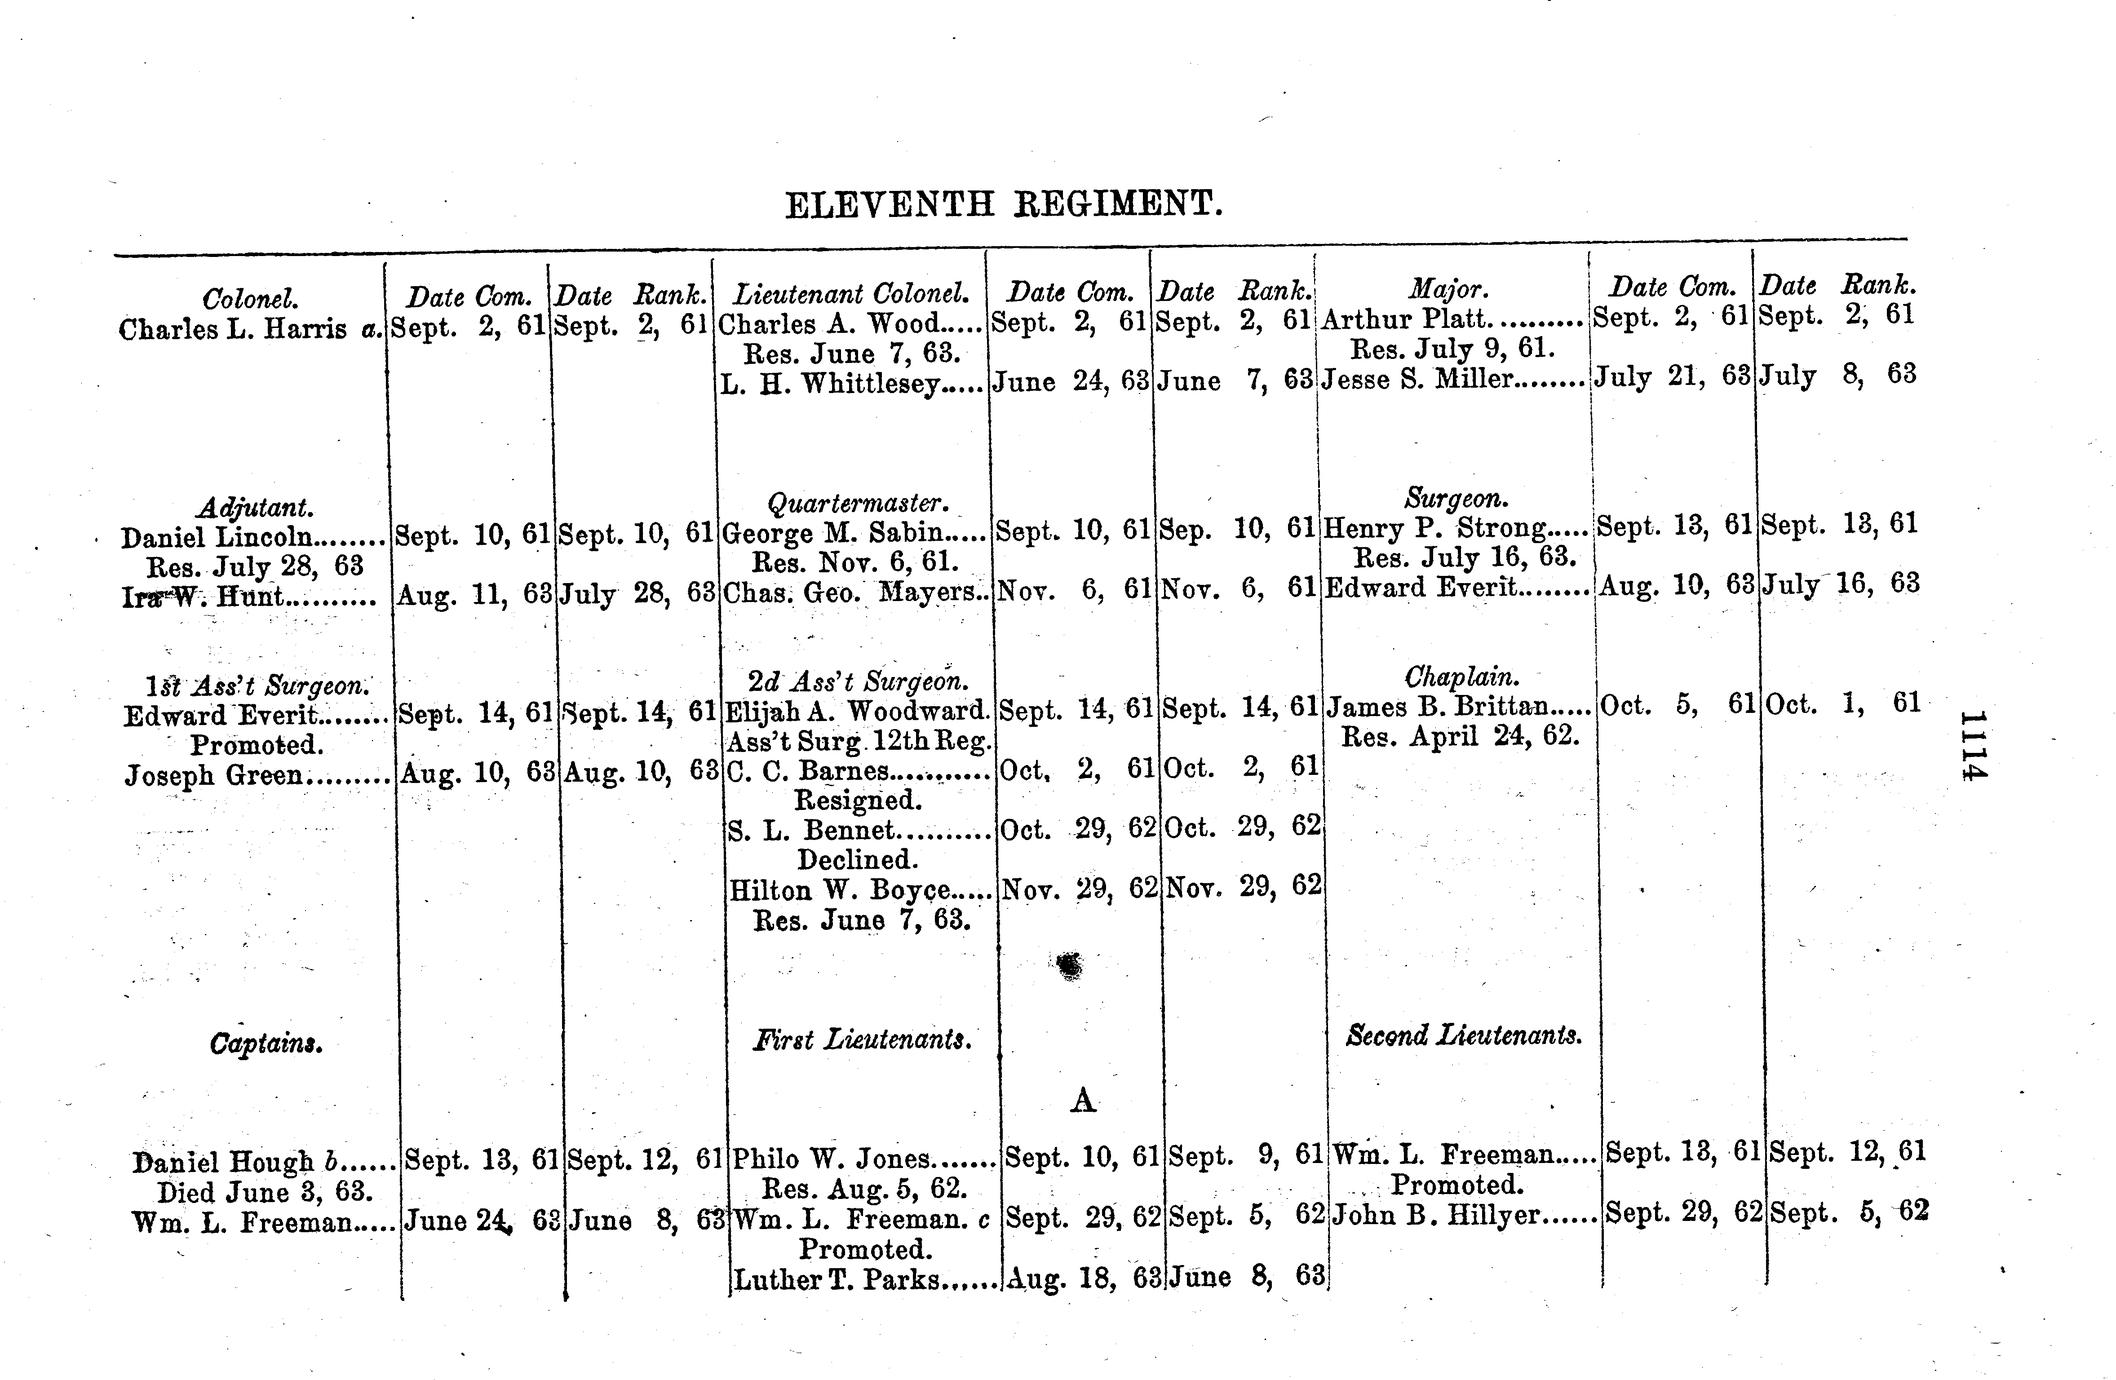 ELEVENTH REGIMENT.
Colonel. Date Com. Date Rank. Lieutenant Colonel. Date Com. Date Rank. Major. Date Com. Date Rank.
Charles L. Harris a. Sept. 2, 61 Sept. 2, 61 Charles A. Wood..... Sept. 2, 61 Sept. 2, 61 Arthur Platt.......... Sept. 2, 61 Sept. 2, 61
Res. June 7, 63. Res. July 9, 61.
L. H. Whittlesey..... June 24, 63 June 7, 63 Jesse S. Miller........ July 21, 63 July 8, 63
Adjutant. Quartermaster. Surgeon.
Daniel Lincoln........ Sept. 10, 61 Sept. 10, 61 George M. Sabin..... Sept. 10, 61 Sep. 10, 61 Henry P. Strong..... Sept. 13, 61 Sept. 13, 61
Res. July 28, 63 Res. Nov. 6, 61. Res. July 16, 63.
Ira W. Hunt.......... Aug. 11, 63 July 28, 63 Chas. Geo. Mayers.. Nov. 6, 61 Nov. 6, 61 Edward Everit........ Aug. 10, 63 July 16, 63
1st Ass't Surgeon. 2d Ass't Surgeon. Chaplain.
Edward Everit........ Sept. 14, 61 Sept. 14, 61 Elijah A. Woodward. Sept. 14, 61 Sept. 14, 61 James B. Brittan..... Oct. 5, 61 Oct. 1, 61
Promoted. Ass't Surg. 12th Reg. Res. April 24, 62.
Joseph Green......... Aug. 10, 63 Aug. 10, 63 C. C. Barnes........... Oct. 2, 61 Oct. 2, 61
Resigned.
S. L. Bennet.......... Oct. 29, 62 Oct. 29, 62
Declined.
Hilton W. Boyce..... Nov. 29, 62 Nov. 29, 62
Res. June 7, 63.
Captains. First Lieutenants. Second Lieutenants.
A
Daniel Hough b...... Sept. 13, 61 Sept. 12, 61 Philo W. Jones....... Sept. 10, 61 Sept. 9, 61 Wm. L. Freeman..... Sept. 13, 61 Sept. 12, 61
Died June 3, 63. Res. Aug. 5, 62. Promoted.
Wm. L. Freeman..... June 24, 63 June 8, 63 Wm. L. Freeman. c Sept. 29, 62 Sept. 5, 62 John B. Hillyer...... Sept. 29, 62 Sept. 5, 62
Promoted.
Luther T. Parks...... Aug. 18, 63 June 8, 63
1114